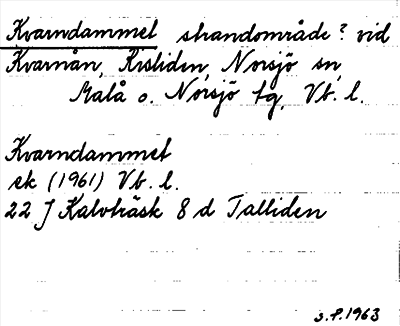 Kvarndammet strandområde? vid
Kvarnån, Risliden, Norsjö sn,
Malå o. Norsjö tg, Vb. l.
Kvarndammet
ek (1961) Vb. l.
22 J Kalvträsk 8 d Talliden
s. P. 1963